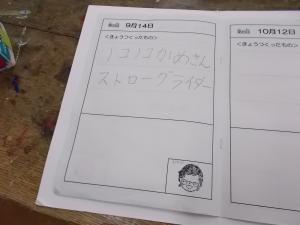 9月14日
<きょうつくったもの>
ノコノコかめさん
ストローグライダー
10月12日
<きょうつくったもの>